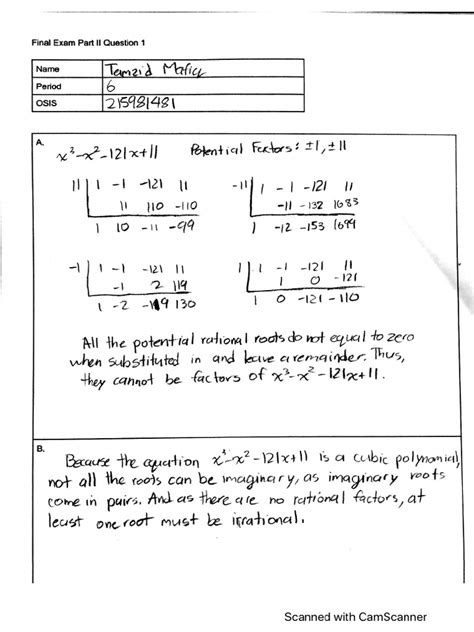 Final Exam Part II Question 1
Name Tamzid
Period 6
OSIS 215981481
A.
x³-x²-121x+11 Potential Factors: ±1, ±11
11 | 1 -1 -121 11
11 110 -110
1 10 -11 -99
-11 | 1 -1 -121 11
-11 -132 1683
1 -12 -153 1694
-1 | 1 -1 -121 11
-1 2 119
1 -2 -119 130
1 | 1 -1 -121 11
1 0 -121
1 0 -121 -110
All the potential rational roots do not equal to zero
when substituted in and leave a remainder. Thus,
they cannot be factors of x³-x²-121x+11.
B.
Because the equation x³-x²-121x+11 is a cubic polynomial,
not all the roots can be imaginary, as imaginary roots
come in pairs. And as there are no rational factors, at
least one root must be irrational.
Scanned with CamScanner